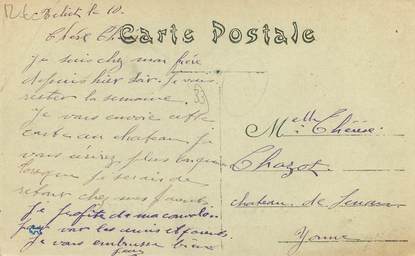 le 10.
Chère
Carte Postale
Je suis chez mon frère
depuis hier soir. Je vais
rester la semaine.
Je vous envoie cette
carte du chateau. Je
vous écrirez plus longue
lorsque je serais de
retour chez mes parents
Je profite de ma
pour voir les amis et parents
Je vous embrasse bien
Melle Thérèse
Chazot
chateau de
Yonne